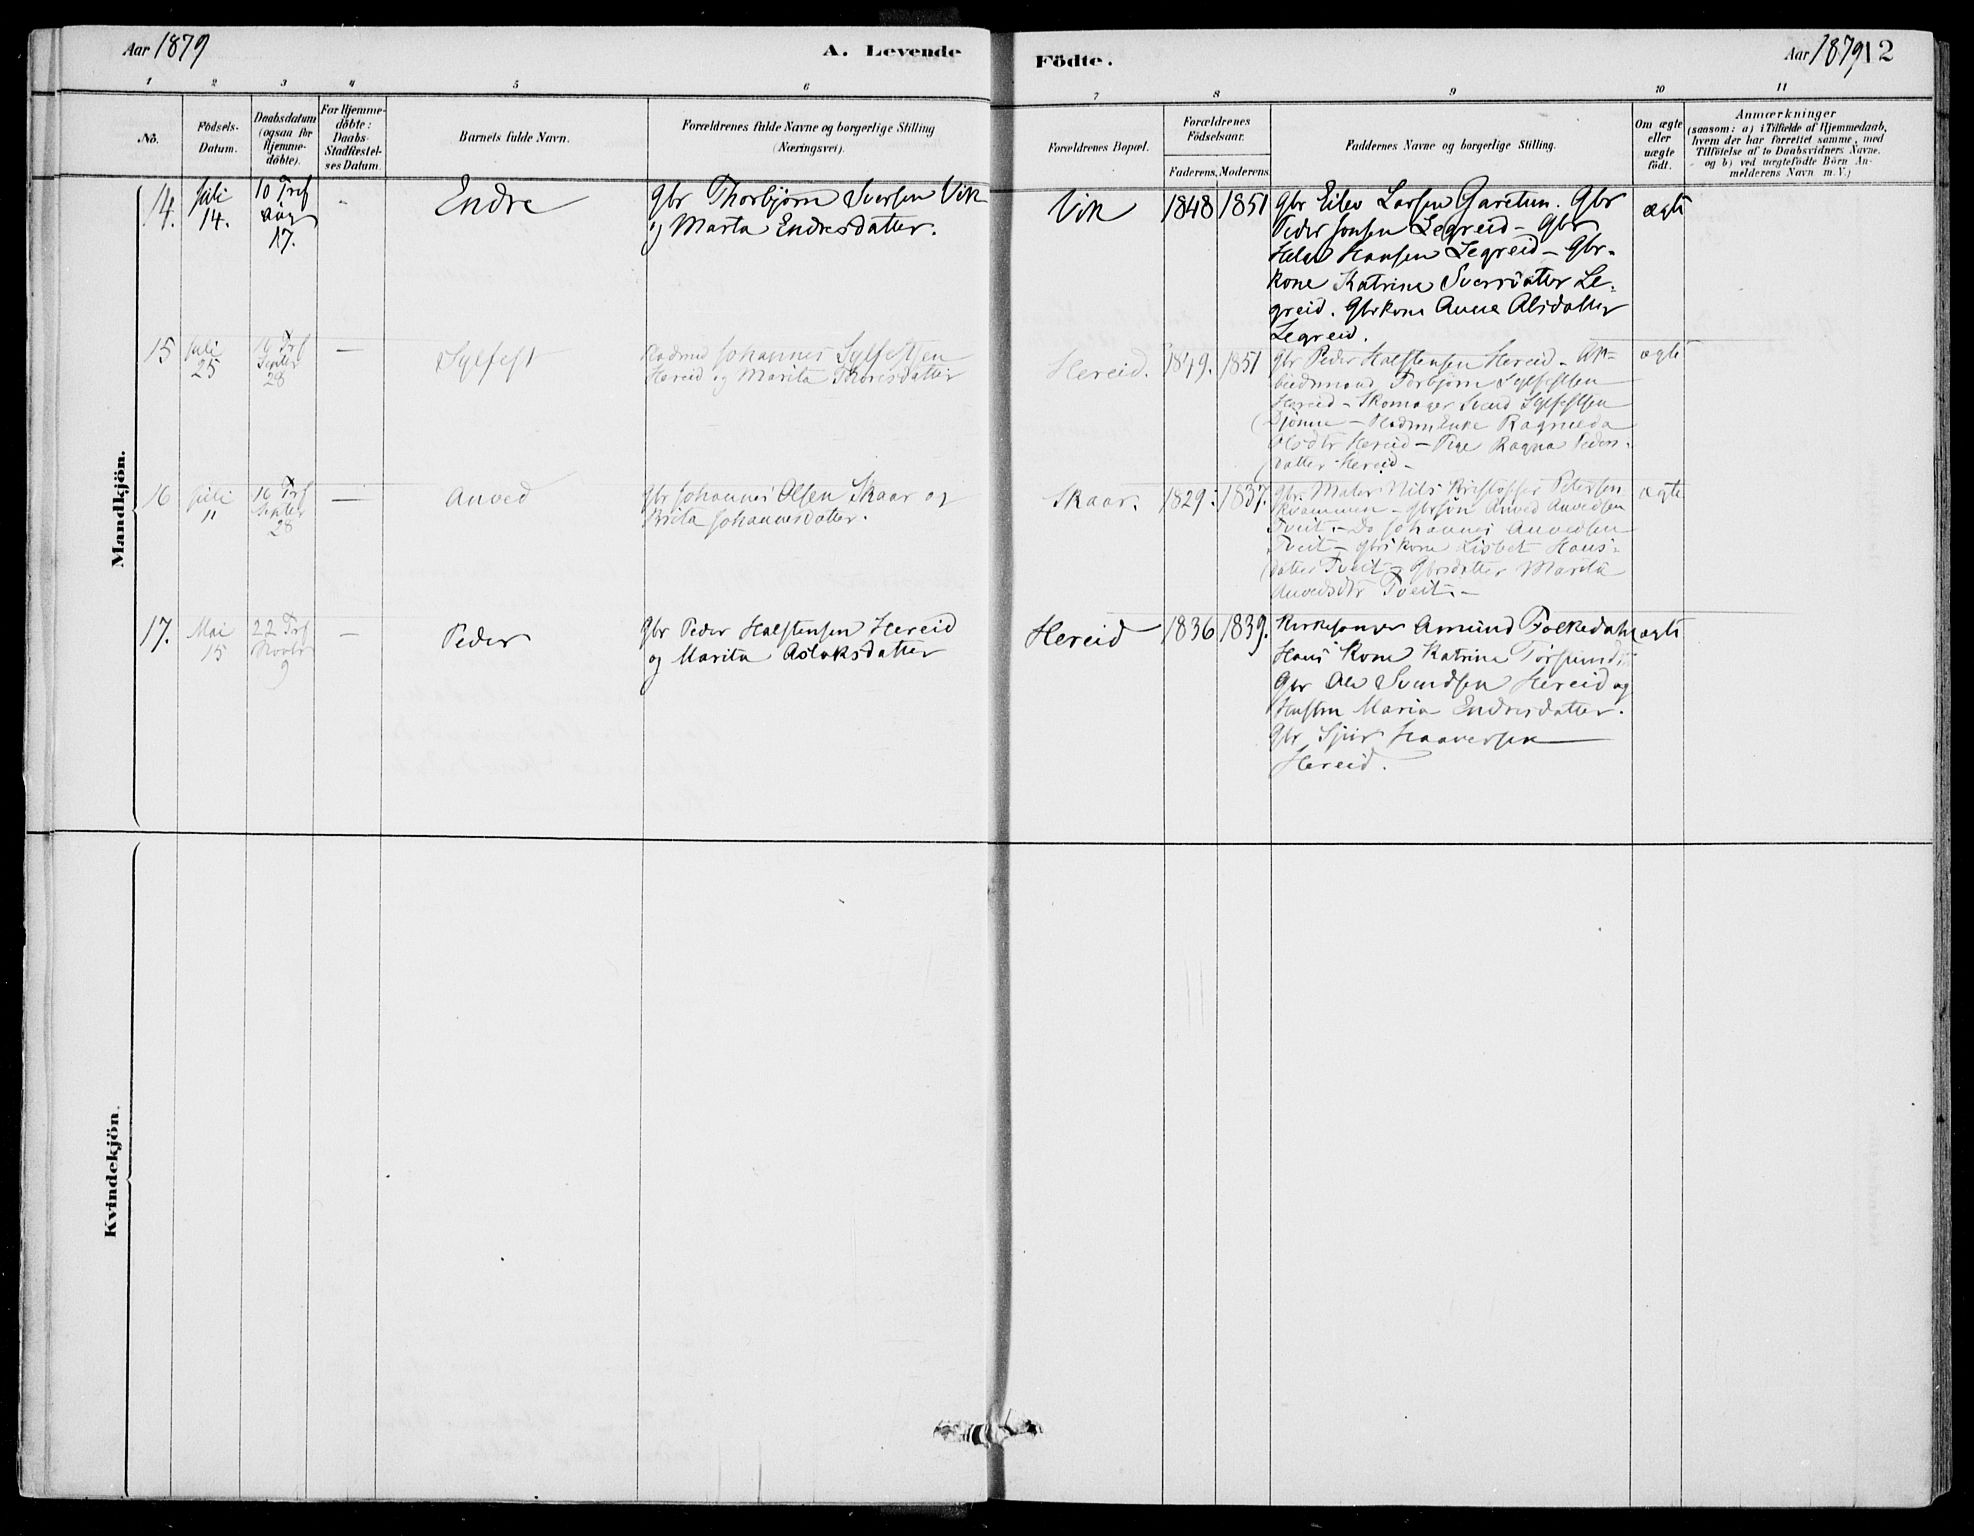 Aar 1879
A. Levende
Födte.
Aar 1879
12
1 2 3 4 5 6
7 8 9 10 11
No.
Födsels-
Datum.
Daabsdatum
(ogsaa for
Hjemme-
döbte).
For Hjemme-
döbte:
Daabs-
Stadfæstel-
ses Datum.
Barnets fulde Navn.
Forældrenes fulde Navne og borgerlige Stilling
(Næringsvei).
Forældrenes Bopæl.
Forældrenes
Födselsaar.
Faderens. Moderens.
Faddernes Navne og borgerlige Stilling.
Om ægte
eller
uægte
födt.
Anmærkninger
(saasom: a) i Tilfælde af Hjemmedaab,
hvem der har forrettet samme, med
Tilföielse af to Daabsvidners Navne,
og b) ved uægtefödte Börn An-
melderens Navn m. V.)
Mandkjön.
14.
Juli
14.
10 Tref
Aug
17.
Endre
Gbr Thorbjørn Iversen Vik
og Marta Endresdatter.
Vik
1848
1851
Gbr Eilev Larsen Garetun. Gbr
Peder Jonsen Legreid - Gbr
Helge Hansen Legreid - Gbr-
kone Katrine Sversdatter Le-
greid. Gbrkone Anna Alsdatter
Legreid.
ægte
15
Juli
25
16 Trf
Septbr
28
—
Sylfest
Johannes Sylfestsen
Hereid og Marita Thoresdatter
Hereid.
1849.
1851
Gbr Peder Halstensen Hereid - Ar-
beidsmand Torbjørn Sylfestsen
Hereid - Skomager Svend Sylfestsen
Djønne - Ragnilda
Olsdtr Hereid - Pige Ragna Peders-
datter Hereid -
ægte
16
Juli
11
16 Trf
Septbr
28
—
Anved
Gbr Johannes Olsen Skaar og
Brita Johannesdatter.
Skaar.
1829.
1837.
Gbr. Maler Nils Kristoffer Petersen
Kvammen - Gbrsøn Anved Anvedsen
Tveit. - Do Johannes Anvedsen
Tveit - Gbrs kone Lisbet Hans-
datter Tveit - Gbrsdatter Marita
Anvedsdtr Tveit. -
ægte
17.
Mai
15
22 Trf
Novbr
9
—
Peder
Gbr Peder Halstensen Hereid
og Marita Aslaksdatter
Hereid
1836
1839.
Kirkesanger Amund Folkedahl
Hans Kone Katrina
Gbr Ole Svendsen Hereid og
Hustru Maria Endresdatter.
Gbr Sjur Haaversen
Hereid.
ægte
Kvindekjön.